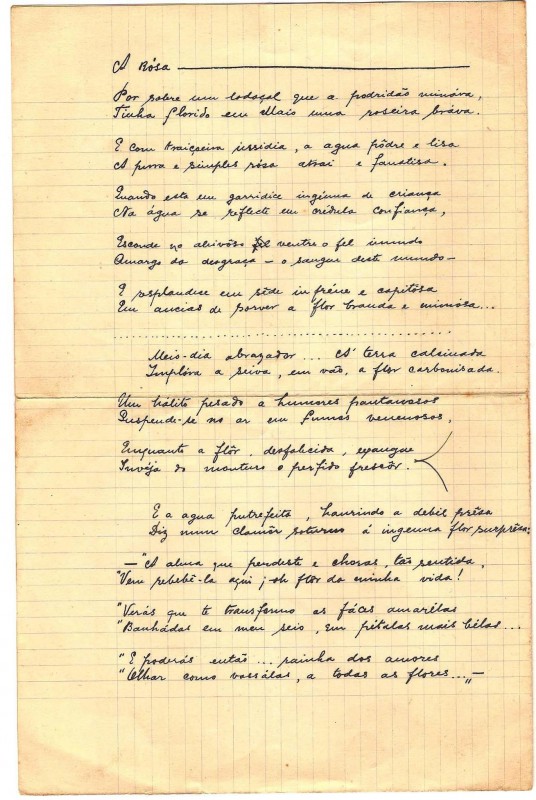 A Rósa
Por sobre um lodoçal que a podridão mináva,
Tinha florido em Maio uma roseira bráva.
E com traiçoeira insidia, a agua pôdre e lisa
A pura e simples rósa atrai e fanatisa.
Quando esta em garridice ingénua de criança
Na água se reflecte em crédula confiança,
Esconde no aleivôso ventre o fel imundo
Amargo da desgraça — o sangue deste mundo —
E resplandece em sêde infréne e capitósa
Em ancias de sorver a flor branda e mimósa...
Meio-dia abrazador... A' terra calcinada
Implóra a seiva, em vão, a flor carbonisada.
Um hálito pesado a humores pantanosos
Suspende-se no ar em fumos venenosos,
Emquanto a flôr, desfalecida, exangue
Invéja do monturo o perfido frescôr.
E a agua putrefeita, haurindo a debil prêsa
Diz num clamôr soturno á ingenua flor surprêsa:
—"A alma que perdeste e choras, tão sentida,
"Vem rebebê-la aqui, oh flor da minha vida!
"Verás que te transformo as fáces amarélas
"Banhádas em meu seio, em pétalas mais bélas...
"E poderás então... rainha dos amores
"Olhar como vassálas, a todas as flores..."—